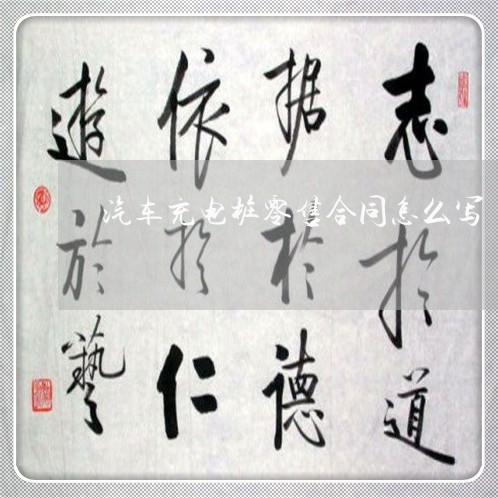 志於道
据於德
依於仁
遊於藝
汽车充电桩零售合同怎么写